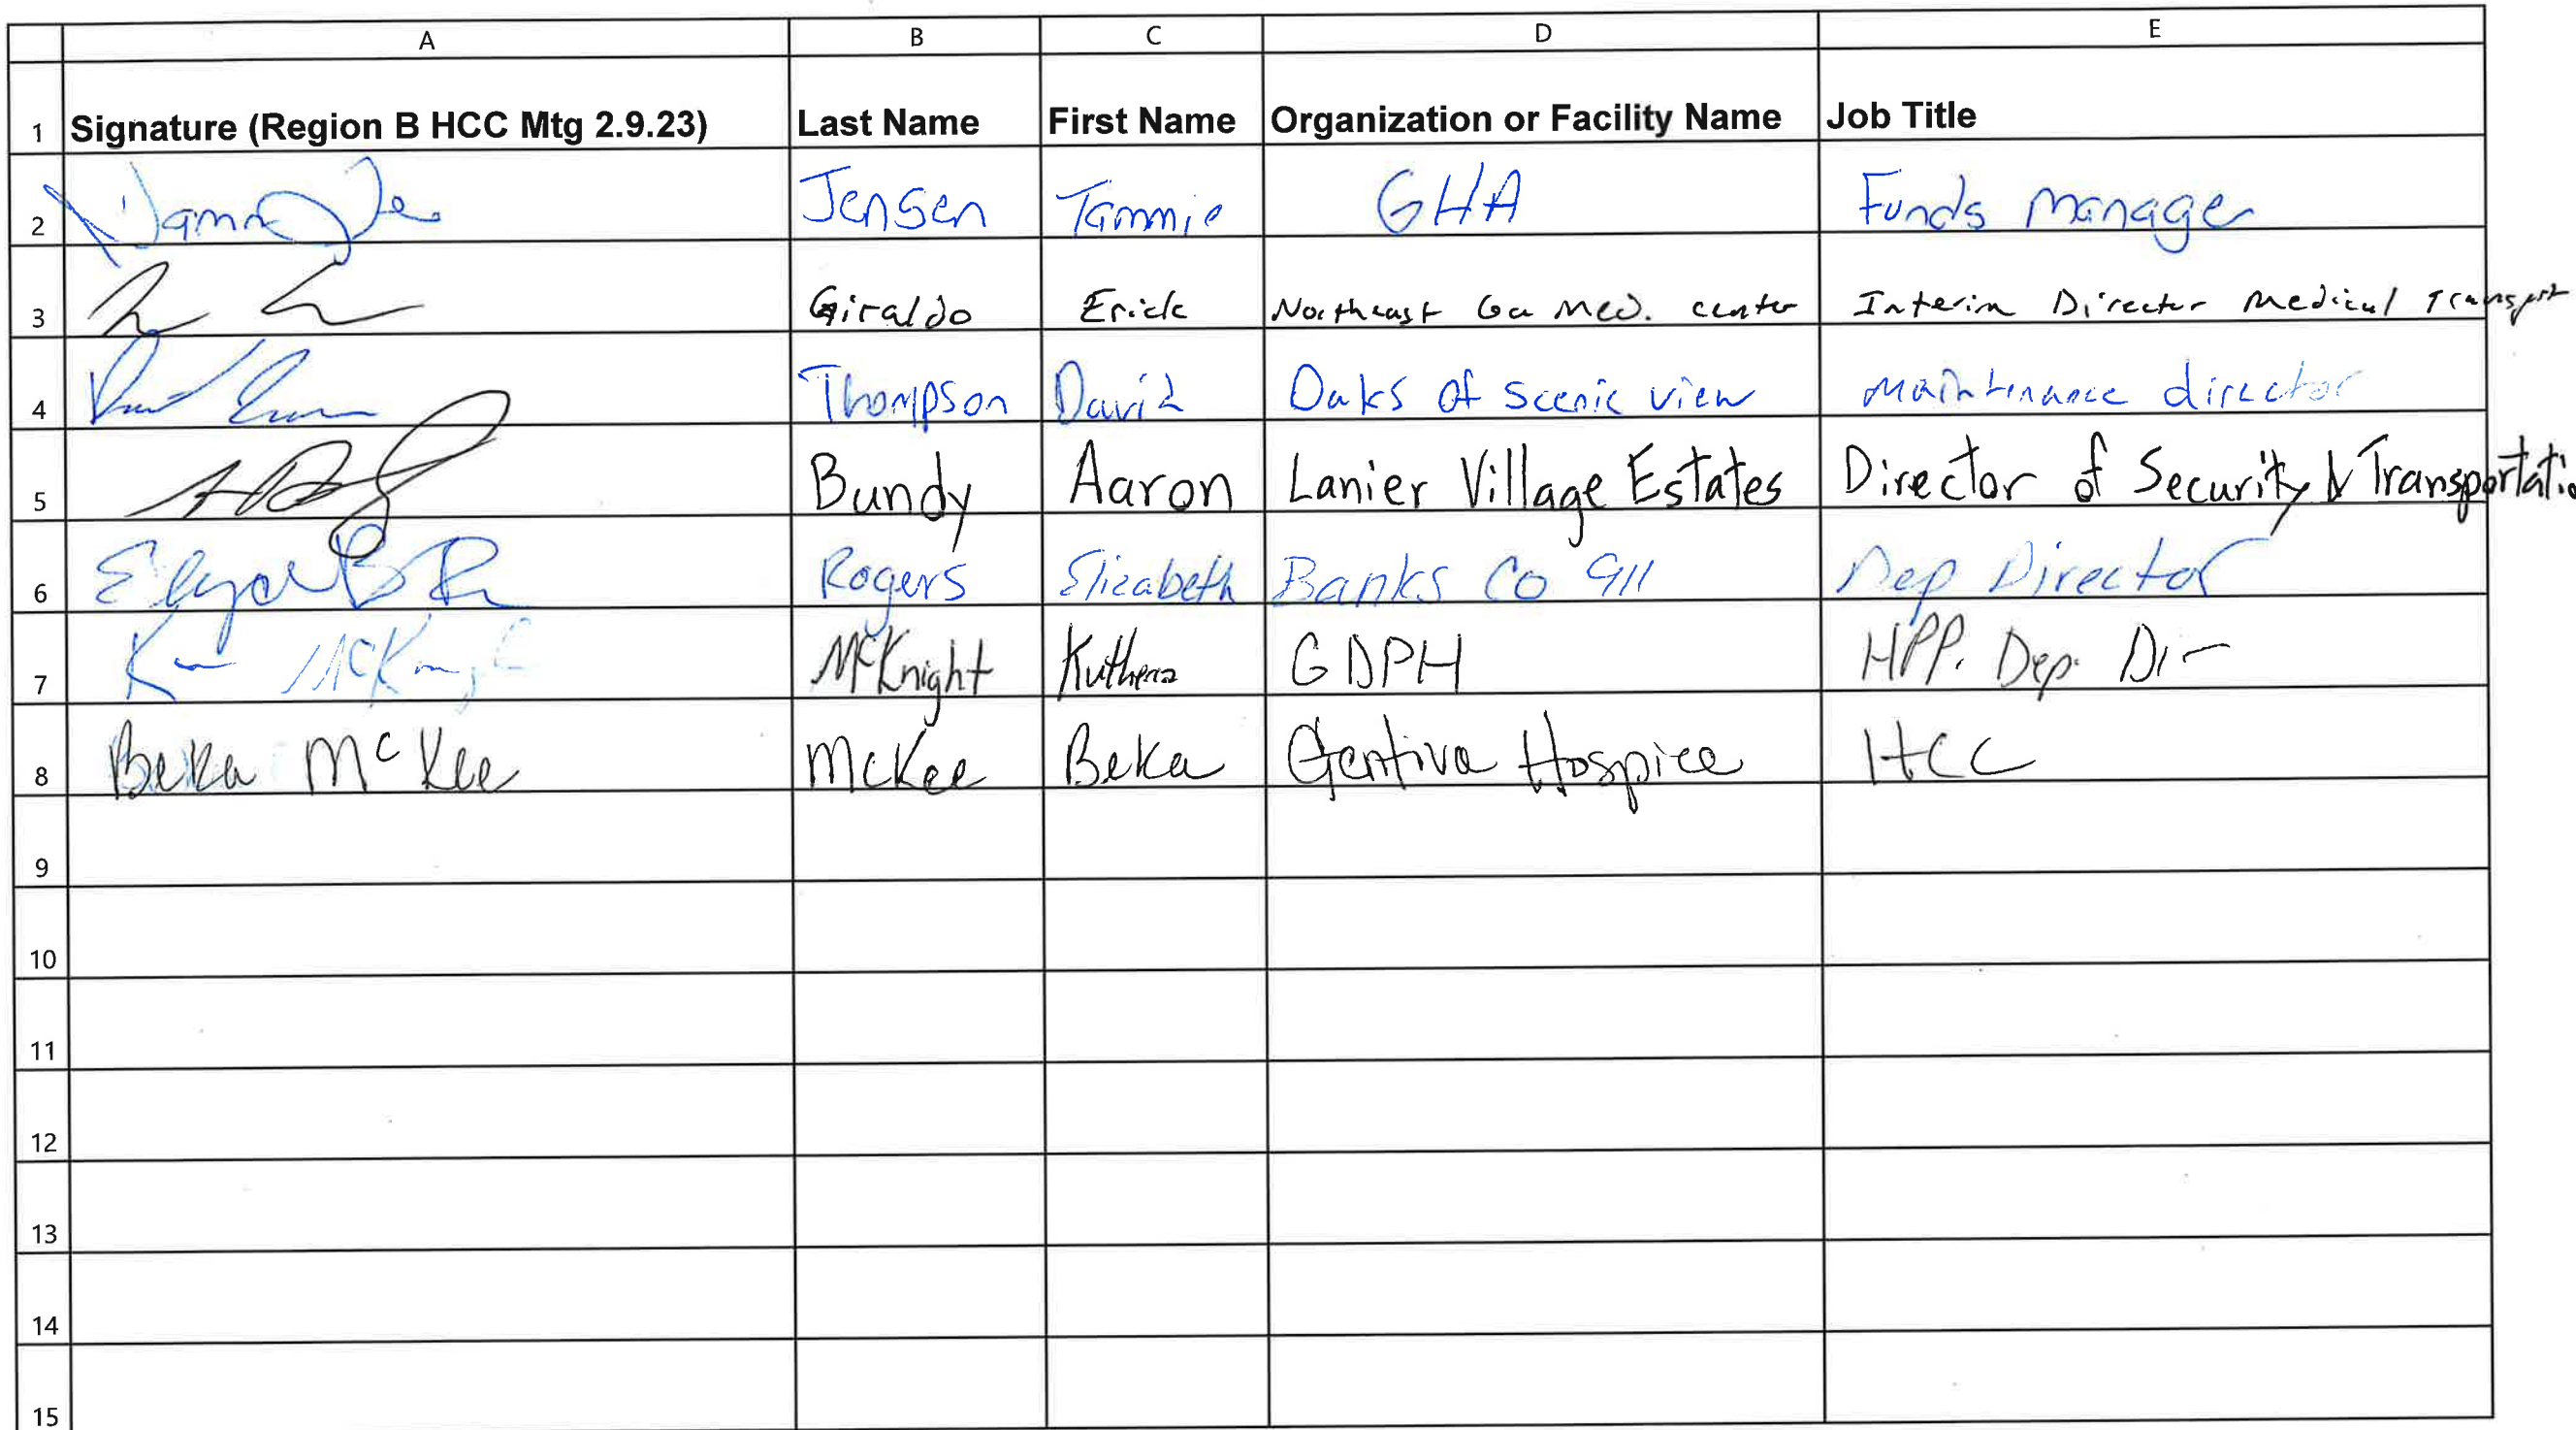 A B C D E
1 Signature (Region B HCC Mtg 2.9.23) Last Name First Name Organization or Facility Name Job Title
2 Jensen Tammie GHA Funds Manager
3 Giraldo Erick Northeast Ga Med. center Interim Director Medical Transport
4 Thompson David Oaks of Scenic View Maintinance director
5 Bundy Aaron Lanier Village Estates Director of Security & Transportatio
6 Rogers Elizabeth Banks Co 911 Dep Director
7 McKnight GDPH HPP. Dep. Dir
8 Beka McKee McKee Beka Gentiva Hospice HCC
9
10
11
12
13
14
15